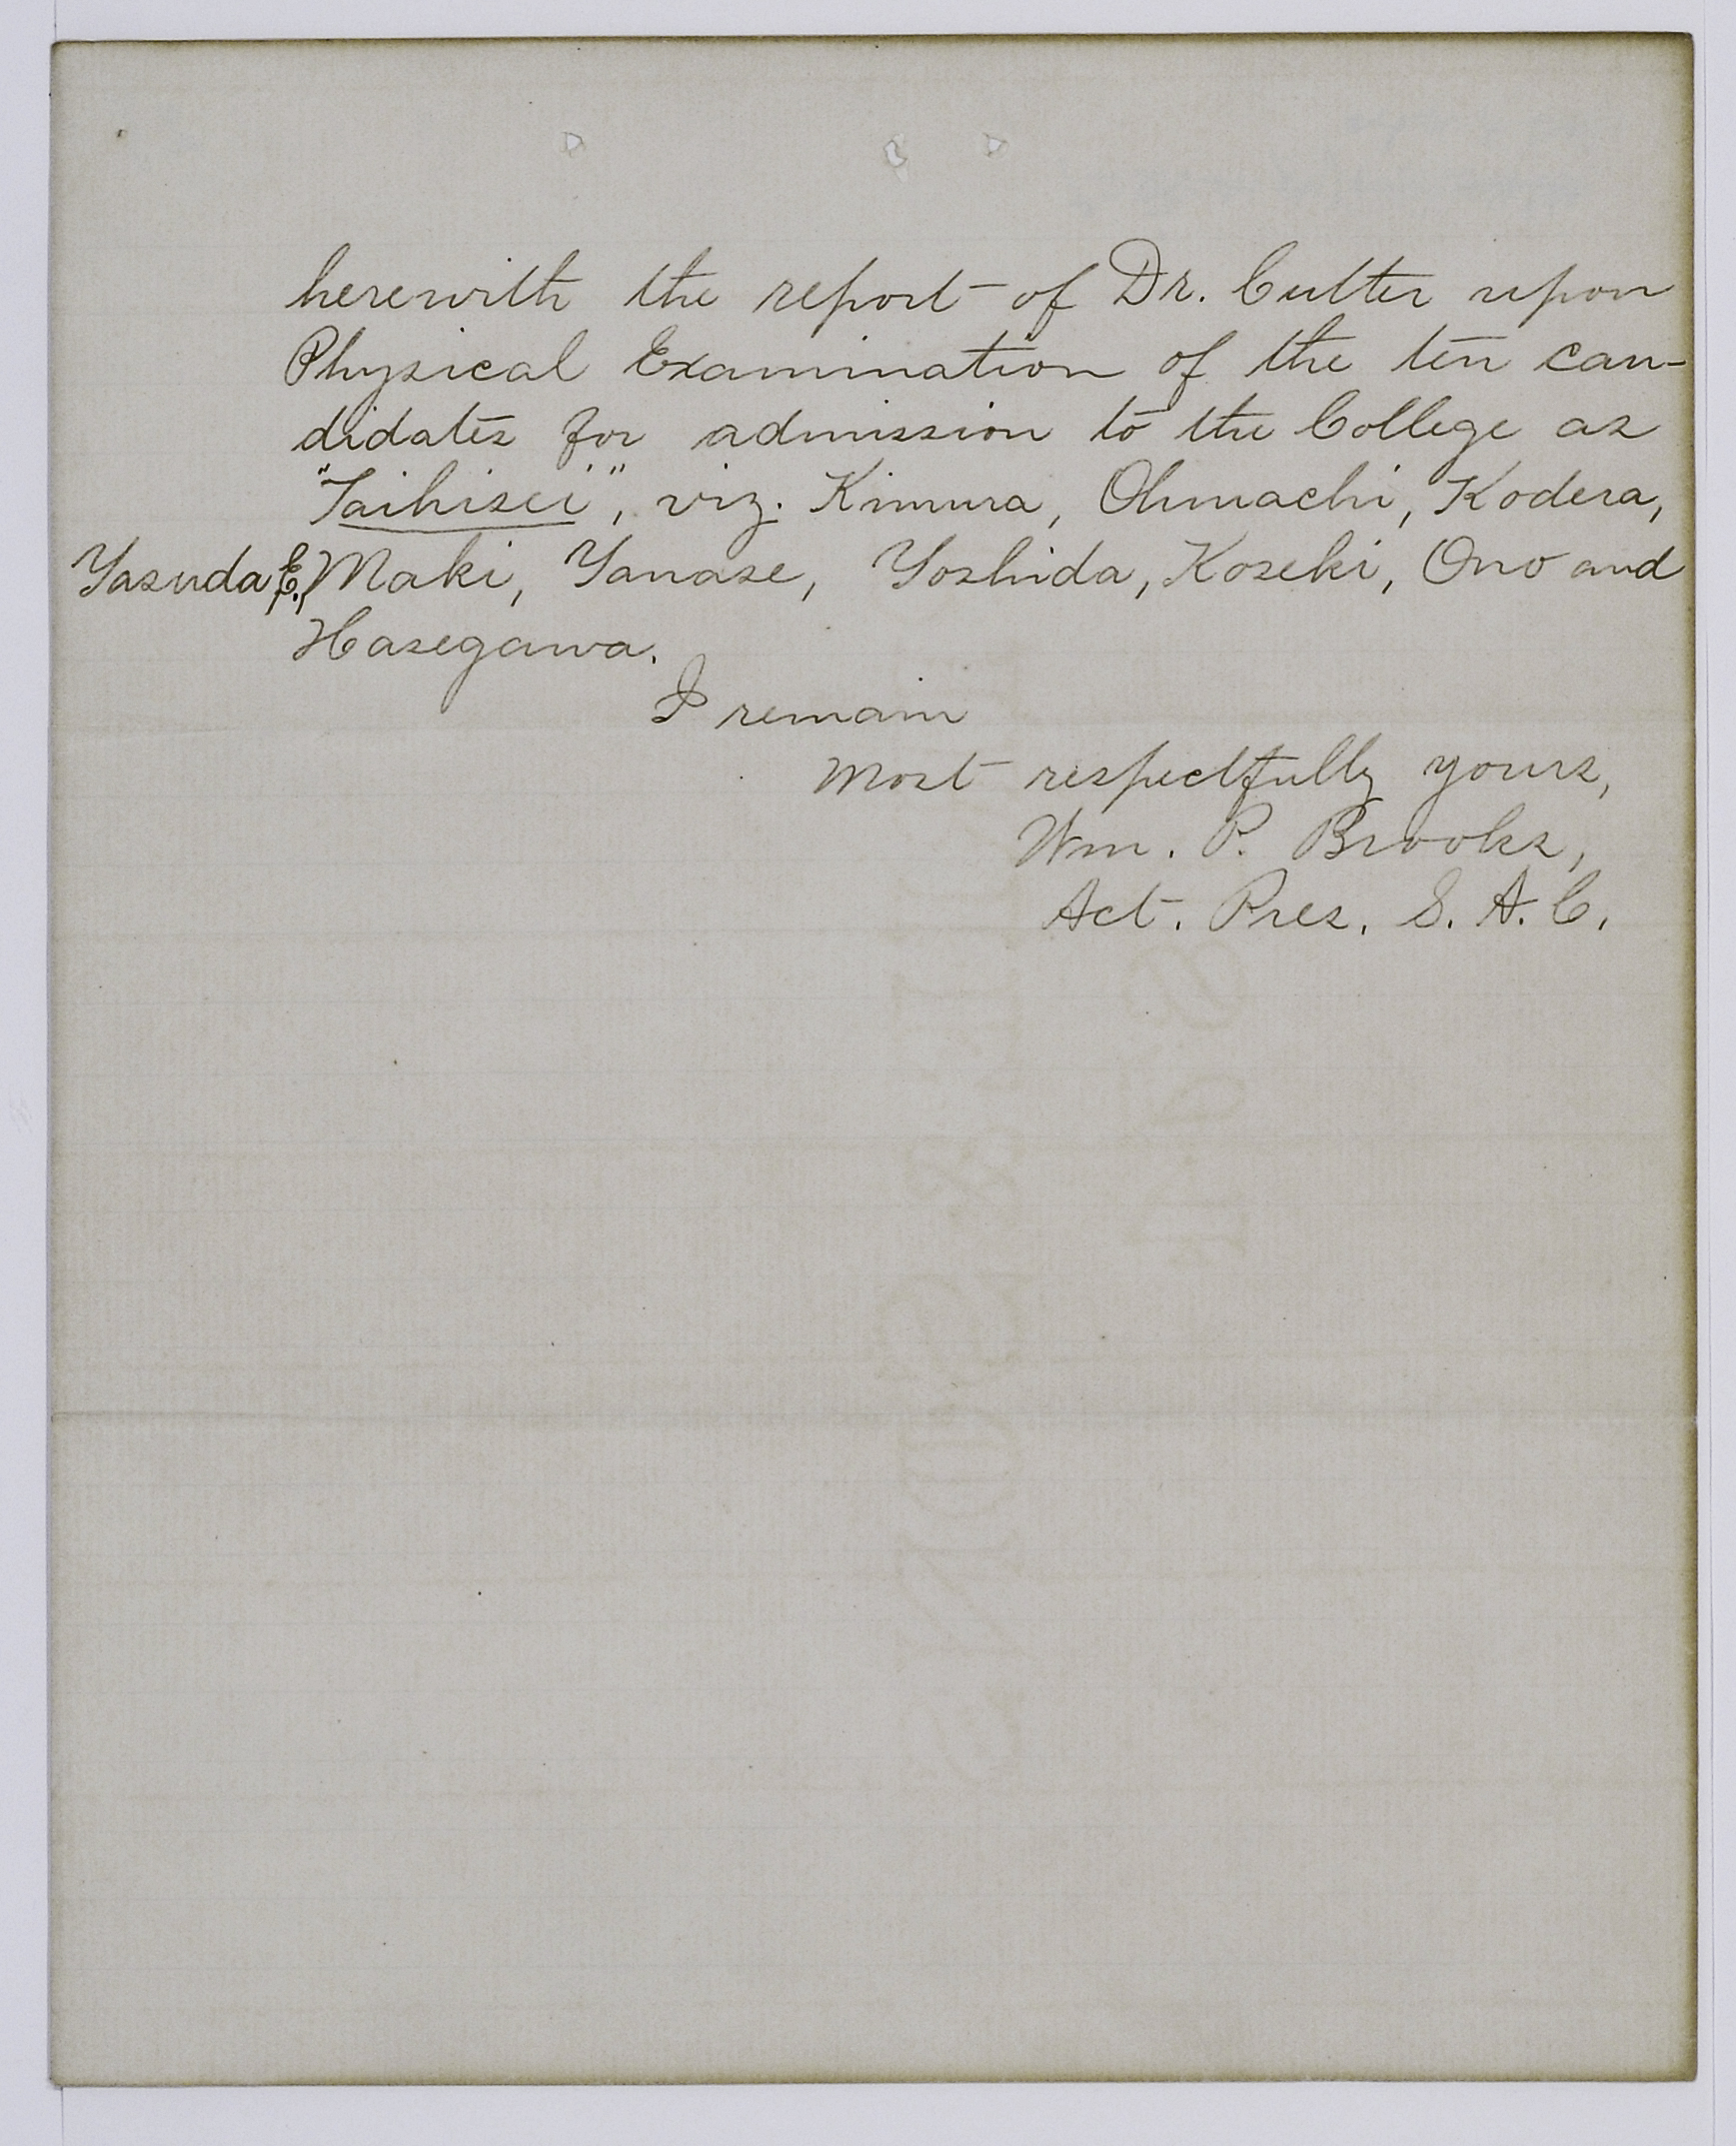 herewith the report of Dr. Cutter upon
Physical Examination of the ten can-
didates for admission to the College as
"Taihisei", viz. Kimura, Ohmachi, Kodera,
Yasuda E., Maki, Yanase, Yoshida, Koseki, Ono and
Hasegawa.
I remain
Most respectfully yours,
Wm. P. Brooks,
Act. Pres. S. A. C.